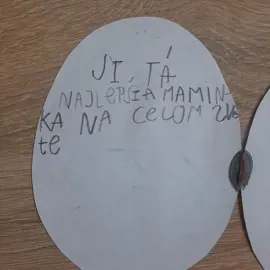 SI, TÁ
NAJLEPŠIA MAMIN
KA NA CELOM SVE
te